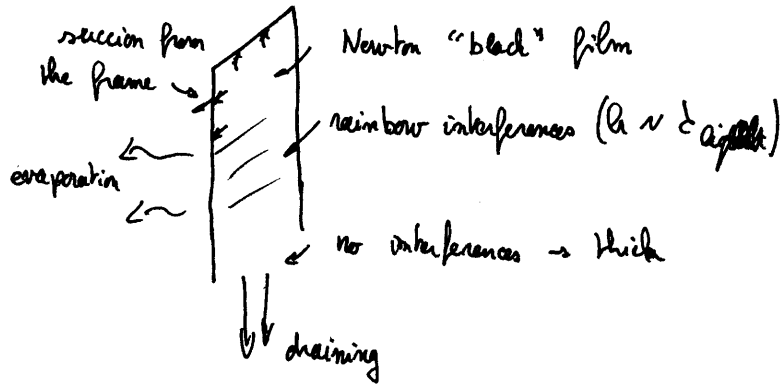 succion from
the frame
Newton "black" film
rainbow interferences (h ~ λ light)
evaporation
no interferences → thick
draining